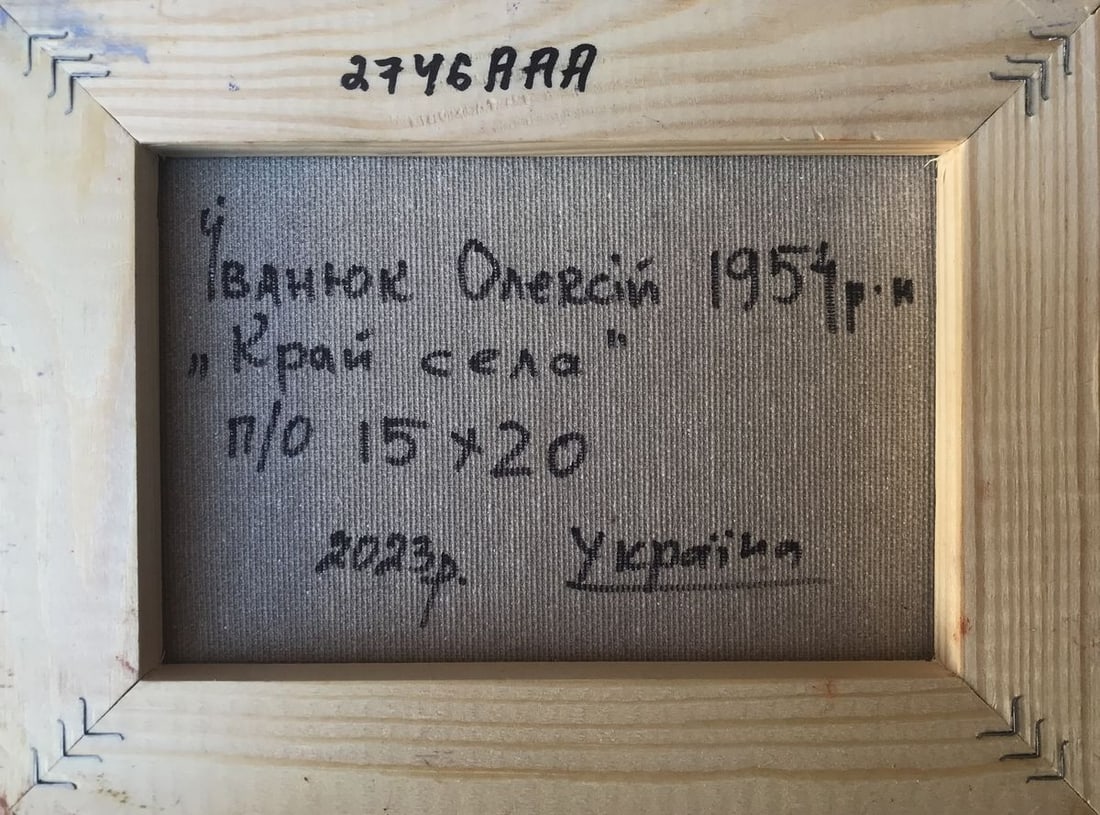 2746ААА
Іванюк Олексій 1954 р.н
„Край села"
п/о 15×20
2023р. Україна